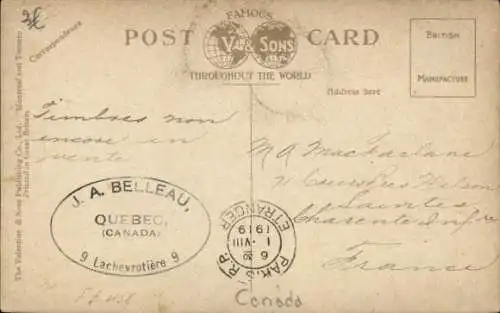 Correspondence
The Valentine & Sons Publishing Co., Ltd., Montreal and Toronto
Printed in Great Britain.
FAMOUS
POST V & SONS CARD
THROUGHOUT THE WORLD
Address here
BRITISH
MANUFACTURE
Timbres non
encore en
vente
J. A. BELLEAU,
QUEBEC,
(CANADA)
9 Lachevrotière 9
ETRANGER
1919
1 VIII
PAR.S R.P.
Mr MacFarlane
71 Cours
Saintes
Charente Infre
France
Canada